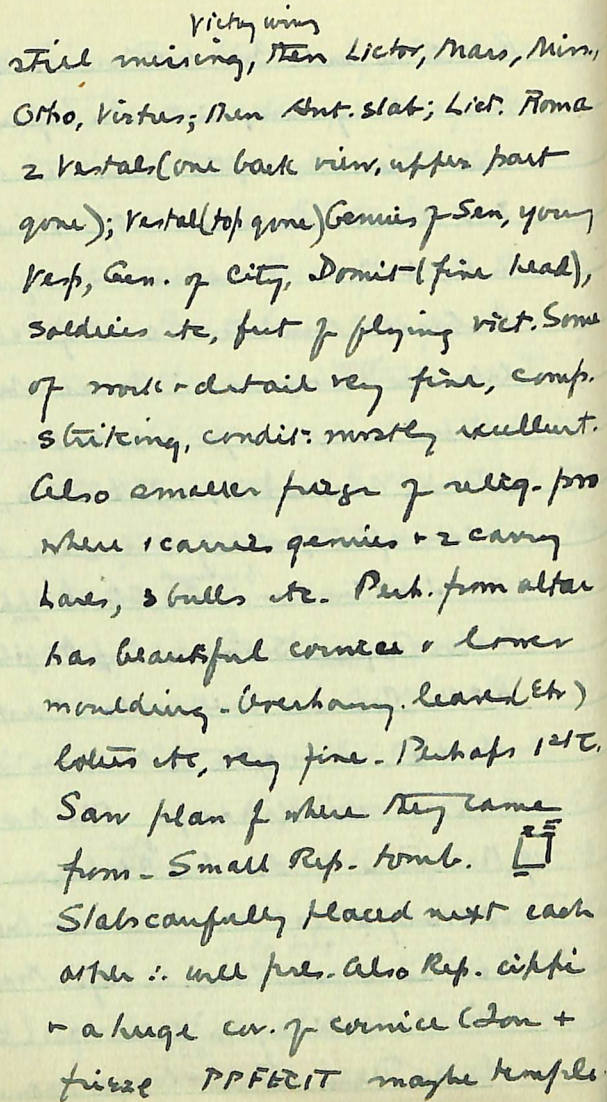 Victory wing
still missing, then Lictor, Mars, Min.,
Otho, Virtus; then Ant. slab; Lict. Roma
2 Vestals (one back view, upper part
gone); Vestal (top gone) Genius of Sen, young
Vesp, Gen. of City, Domit (fine head),
soldiers etc, feet of flying vict. Some
of work + detail very fine, comp.
striking, condit: mostly excellent.
Also smaller frieze of relig. pro
where 1 carries genius + 2 carry
Lares, 3 bulls etc. Perh. from altar
has beautiful cornice + lower
moulding - Overhang. leaves (Etr)
lotus etc, very fine - Perhaps 1st C.
Saw plan of where they came
from - Small Rep. tomb.
Slabs carefully placed next each
other ∴ well pres. Also Rep. cippi
+ a huge cor. of cornice (Ion +
frieze PPFECIT maybe temple.